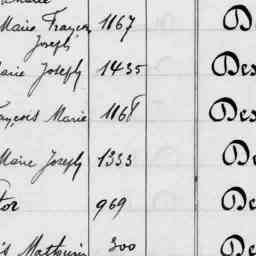 Marie François 1167 D
Joseph
Marie Joseph 1435 Des
François Marie 1168 Des
Marie Joseph 1333 De
tor 969 De
is Mathurin 300 De